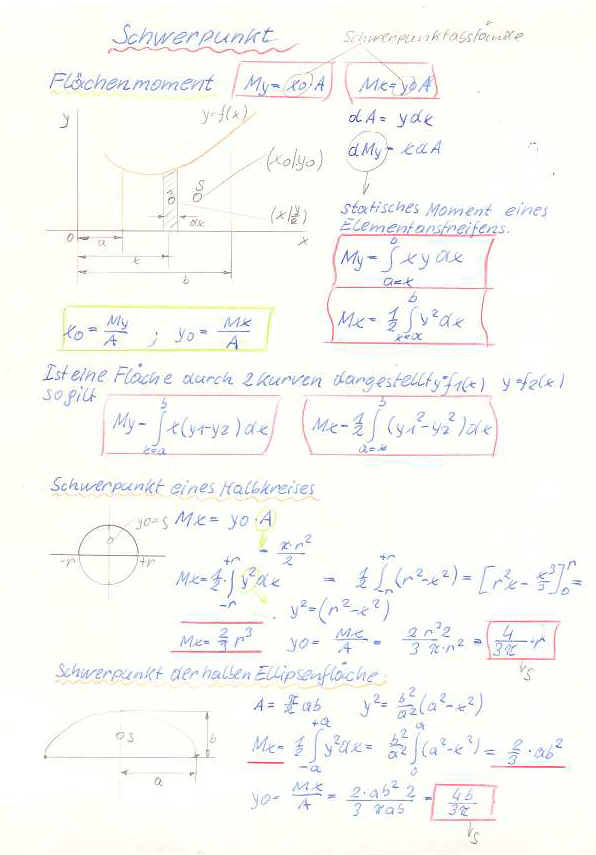 Schwerpunkt
Schwerpunktabstände
Flächenmoment My = x0·A Mx = y0·A
dA = y dx
dMy = x dA
y y=f(x)
(x0|y0)
S
(x|y/2)
dx
0 a x
x
b
statisches Moment eines
Elementarstreifens.
My = ∫ₐ₌ₓᵇ x y dx
Mx = 1/2 ∫ₓ₌ₐᵇ y² dx
x0 = My/A ; y0 = Mx/A
Ist eine Fläche durch 2 Kurven dargestellt y=f1(x) y=f2(x)
so gilt
My = ∫ₓ₌ₐᵇ x(y1-y2) dx Mx = 1/2 ∫ₐ₌ₓᵇ (y1²-y2²) dx
Schwerpunkt eines Halbkreises
y0=S Mx = y0·A
-r +r
= π·r²/2
Mx = 1/2 · ∫₋ᵣ⁺ʳ y² dx = 1/2 ∫₋ᵣ⁺ʳ (r²-x²) = [r²x - x³/3]₀ʳ =
y² = (r²-x²)
Mx = 2/3 r³ y0 = Mx/A = 2 r³ 2 / 3 π·r² = 4/3π · r
S
Schwerpunkt der halben Ellipsenfläche:
A = π/2 ab y² = b²/a² (a²-x²)
S b a
Mx = 1/2 ∫₋ₐ⁺ᵃ y² dx = b²/a² ∫₀ᵃ (a²-x²) = 2/3 · ab²
y0 = Mx/A = 2·ab² 2 / 3 πab = 4b/3π
S